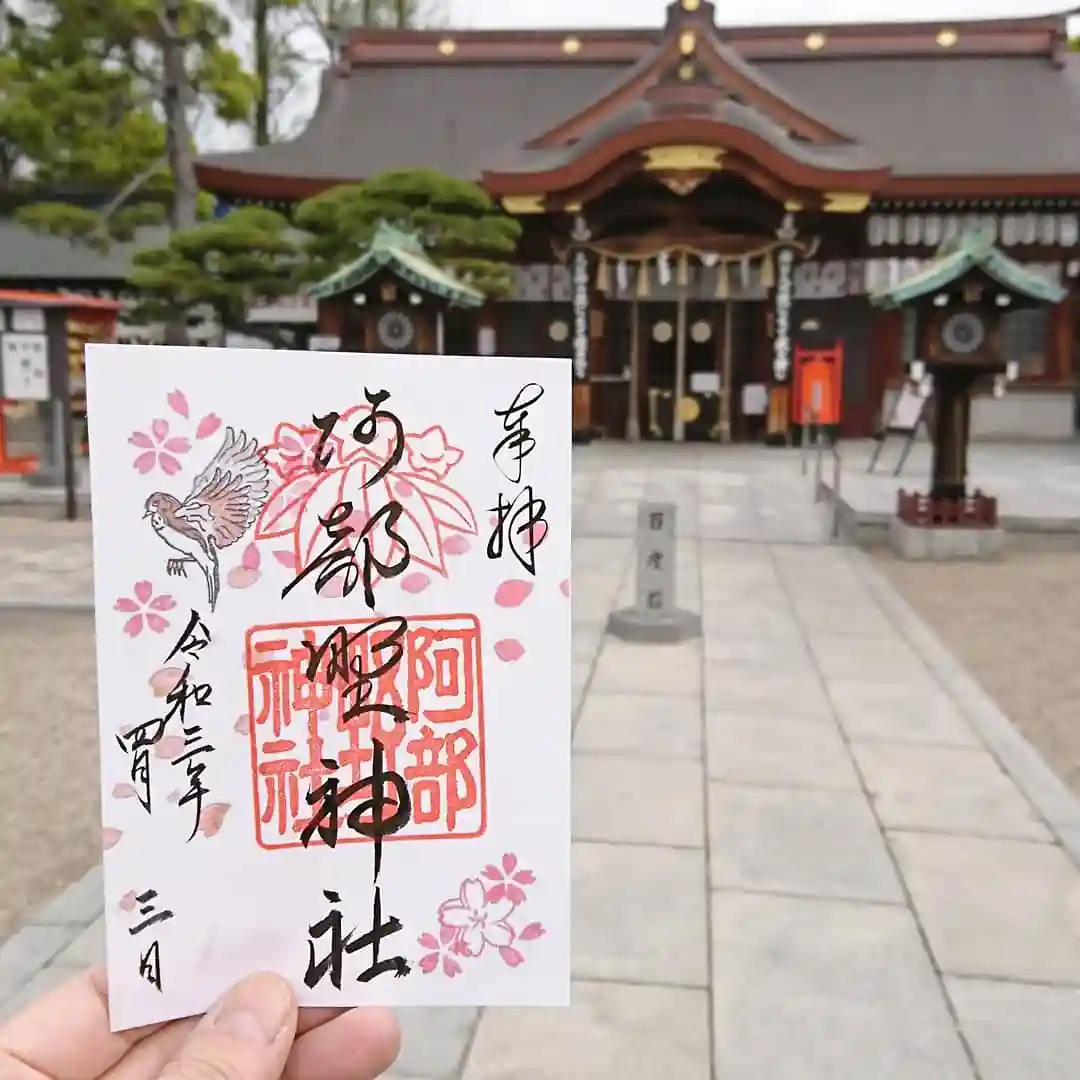 奉拝
阿部野神社
阿部
野
神社
令和三年
四月
三日
百度石